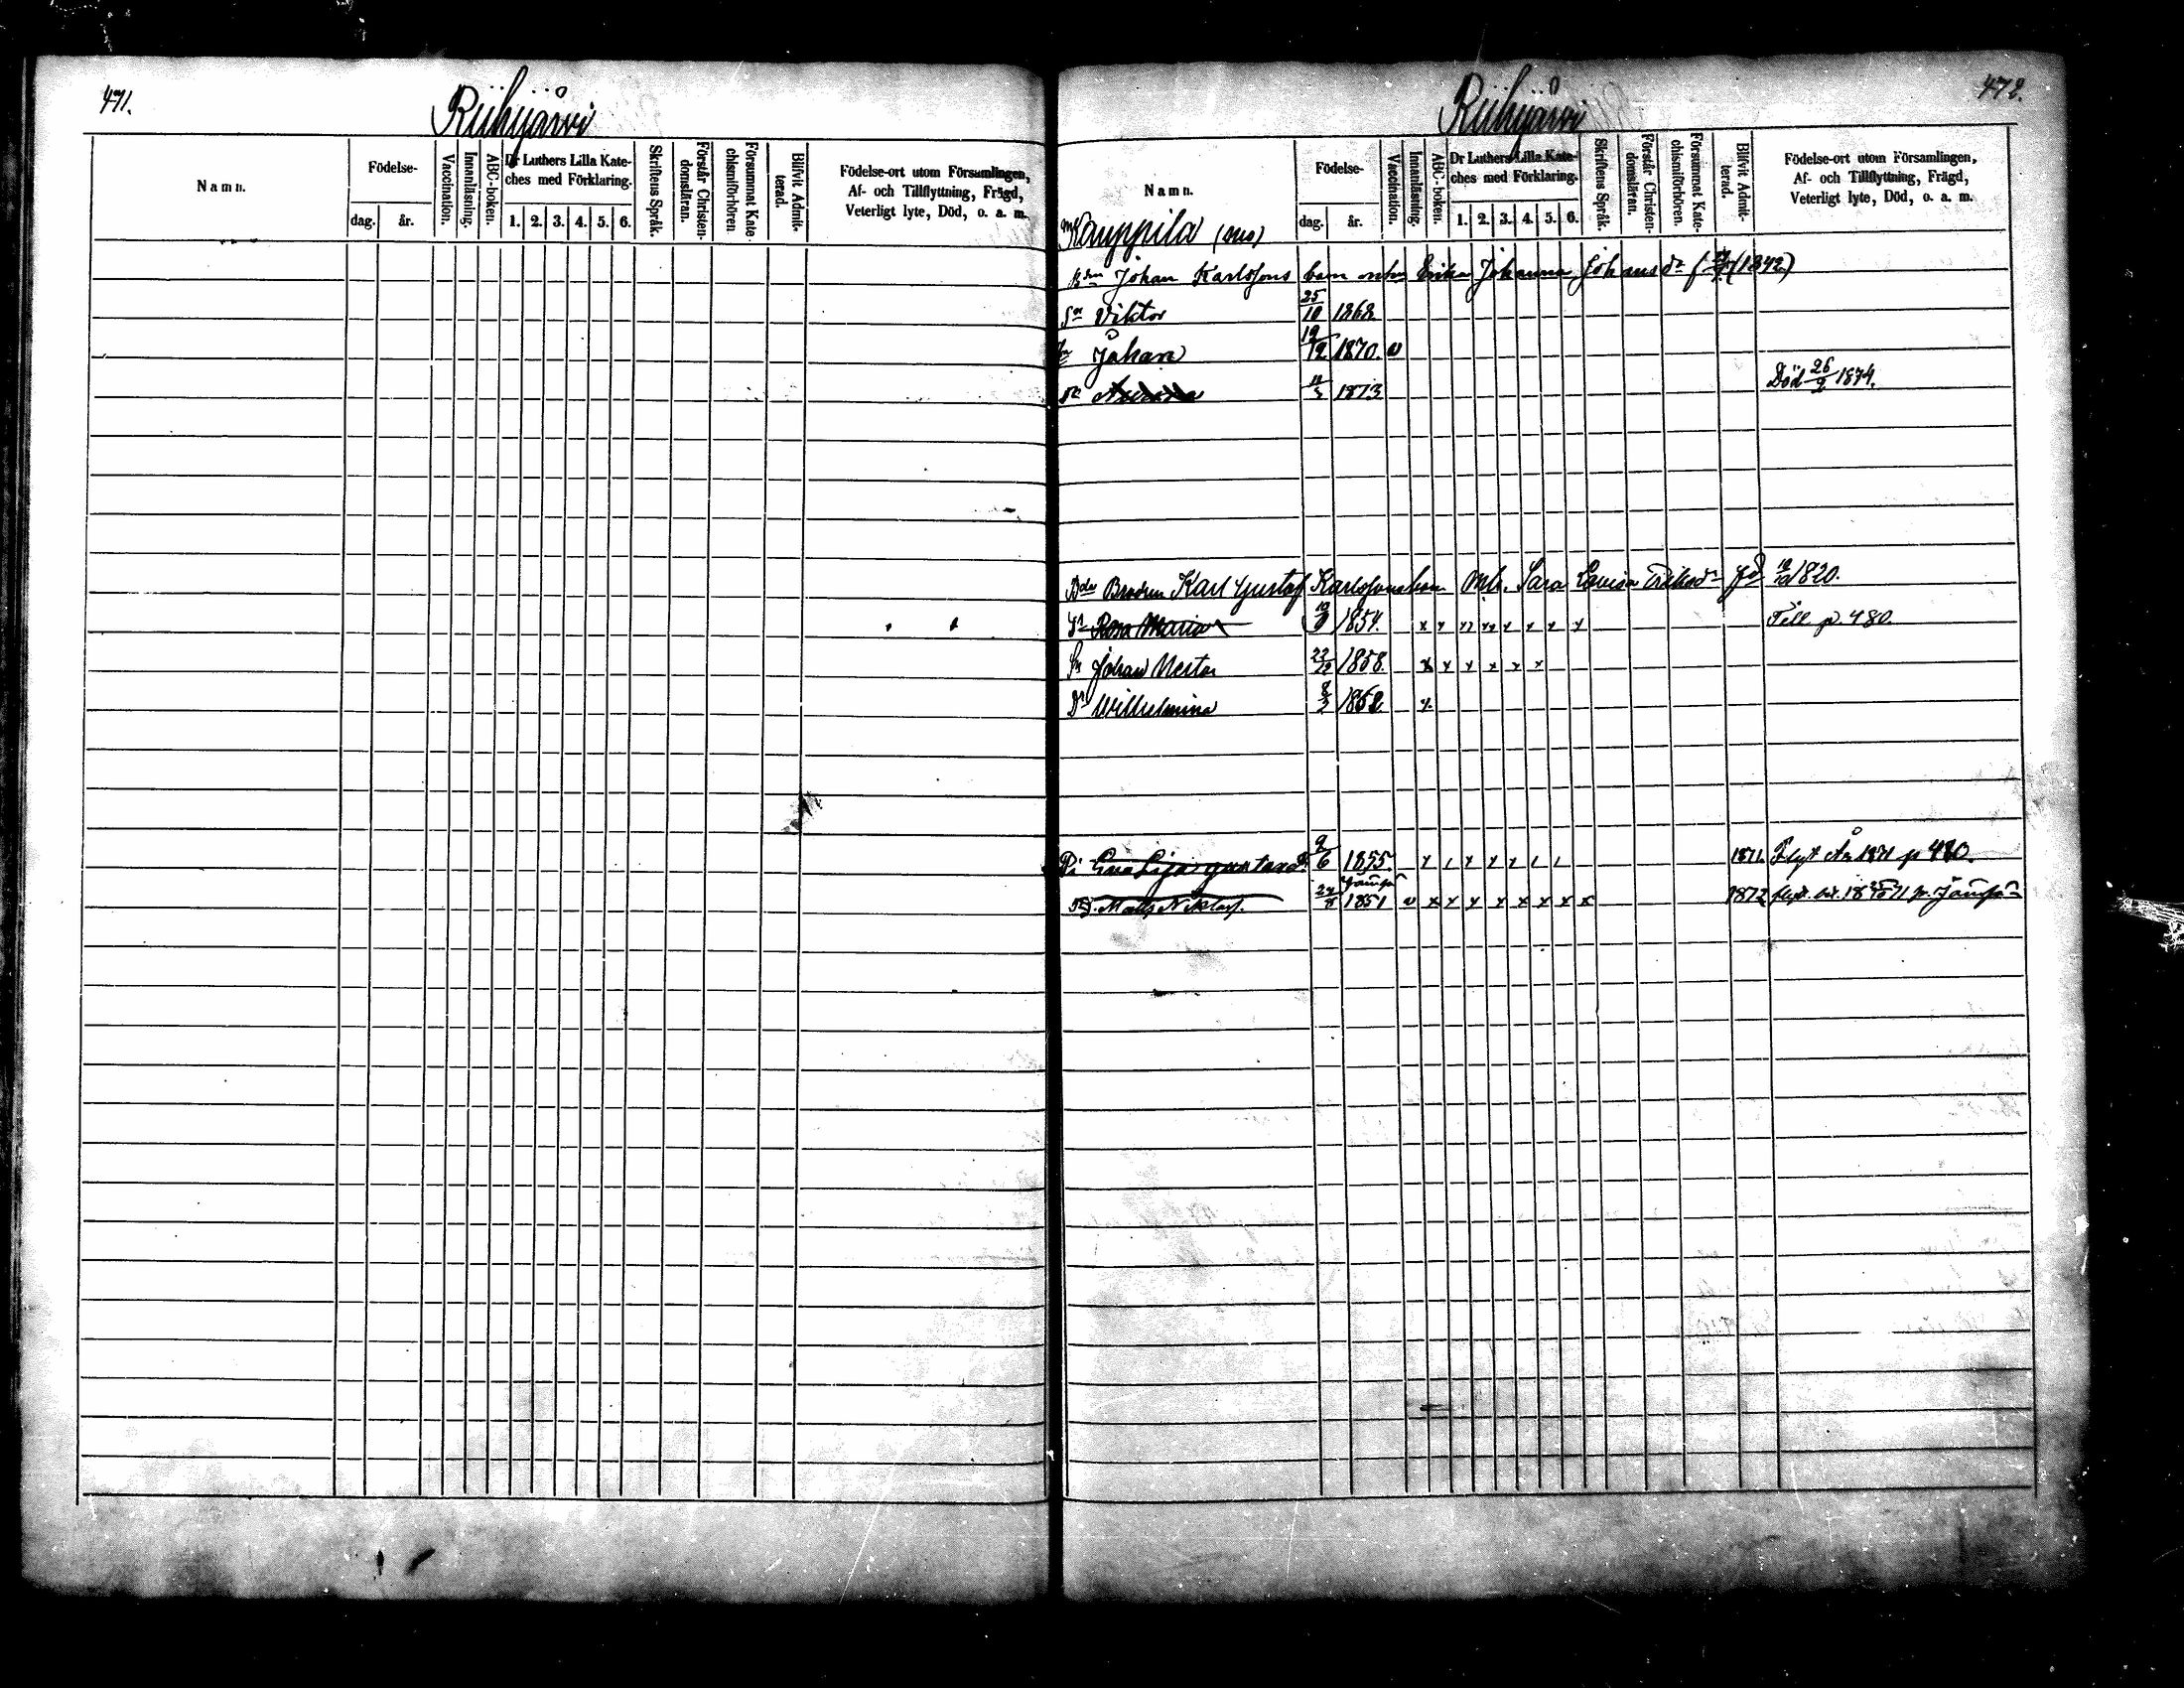 471.
Riihijärvi
Namn.
Födelse-
dag. år.
Vaccination.
Innanläsning.
ABC-boken.
Dr Luthers Lilla Kate-
ches med Förklaring.
1. 2. 3. 4. 5. 6.
Skriftens Språk.
Förstår Christen-
domsläran.
Försummat Kate-
chismiförhören
Blifvit Admit-
terad.
Födelse-ort utom Församlingen,
Af- och Tillflyttning, Frägd,
Veterligt lyte, Död, o. a. m.
472.
Riihijärvi
Namn.
Födelse-
dag. år.
Vaccination.
Innanläsning.
ABC-boken.
Dr Luthers Lilla Kate-
ches med Förklaring.
1. 2. 3. 4. 5. 6.
Skriftens Språk.
Förstår Christen-
domsläran.
Försummat Kate-
chismiförhören.
Blifvit Admit-
terad.
Födelse-ort utom Församlingen,
Af- och Tillflyttning, Frägd,
Veterligt lyte, Död, o. a. m.
Kauppila
Johan Karlssons barn Erika Johanna Johansdr (1842)
Sn Viktor 25/10 1868
Sn Johan 19/12 1870. v
1873 Död 26/9 1874.
Brodren Karl Gustaf Karlssons barn Sara Lovisa 1820.
Dr Rosa Maria 1854. x x x x x x x x Till p. 480.
Sn Johan Nestor 22/12 1858. x x x x x x
Dr Wilhelmina 8/3 1862 x
Pi Eva Lisa Gustavsd. 9/6 1855. x x x x 1871. Flyt. År 1871 p 480.
Matts Niklas. 1851 v x x x x x x x x 1872